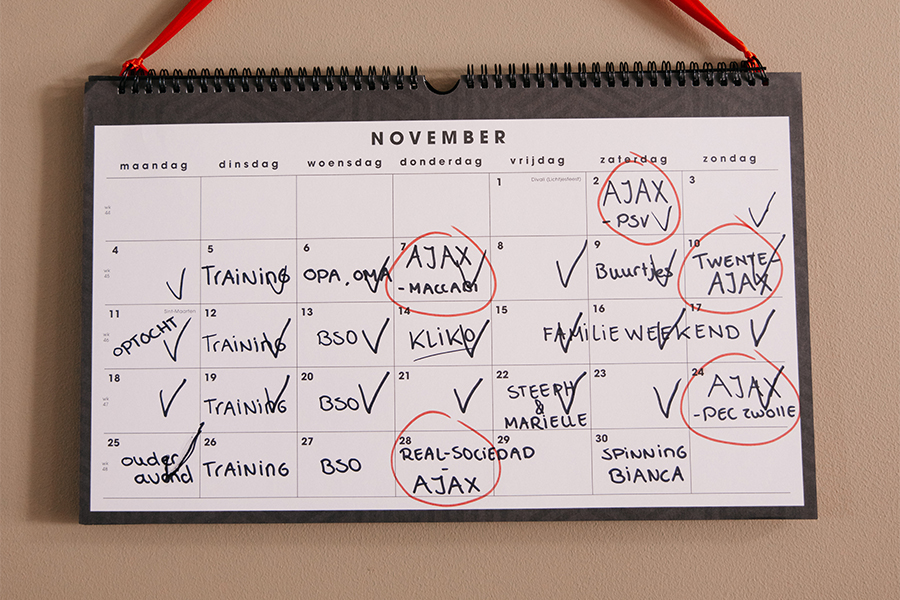 NOVEMBER
maandag dinsdag woensdag donderdag vrijdag zaterdag zondag
1 Divali (Lichtjesfeest) 2 3
AJAX
- PSV
4 5 6 7 8 9 10
TRAINING OPA, OMA AJAX Buurtjes TWENTE-
- MACCABI AJAX
11 Sint-Maarten 12 13 14 15 16 17
OPTOCHT TRAINING BSO KLIKO FAMILIEWEEKEND
18 19 20 21 22 23 24
TRAINING BSO STEEPH AJAX
& - PEC ZWOLLE
MARIELLE
25 26 27 28 29 30
ouder TRAINING BSO REAL-SOCIEDAD SPINNING
avond - BIANCA
AJAX